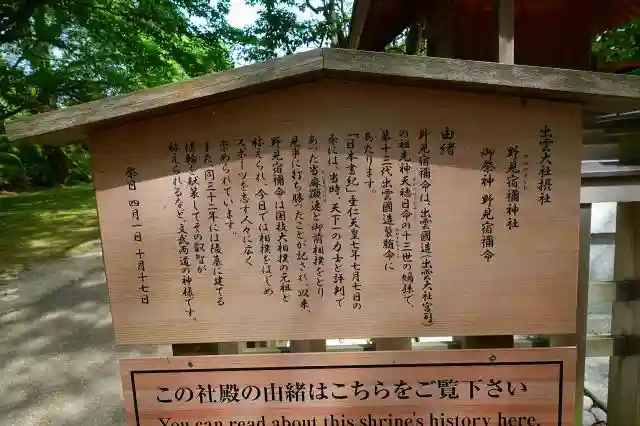 出雲大社摂社
野見宿禰神社
御祭神 野見宿禰命
由緒
野見宿禰命は、出雲國造(出雲大社宮司)
の祖先神天穂日命の十三世の嫡孫で、
第十三代出雲國造襲髄命に
あたります。
「日本書紀」垂仁天皇七年七月七日の
条には、当時、天下一の力士と評判で
あった当麻蹶速と御前相撲をとり
見事に打ち勝ったことが記され、以来、
野見宿禰命は国技大相撲の元祖と
称えられ、今日では相撲をはじめ
スポーツを志す人々に広く
崇められています。
また同三十二年には陵墓に建てる
埴輪を献策してその叡智が
称えられるなど、文武両道の神様です。
祭日 四月一日 十月十七日
この社殿の由緒はこちらをご覧下さい
You can read about this shrine's history here.